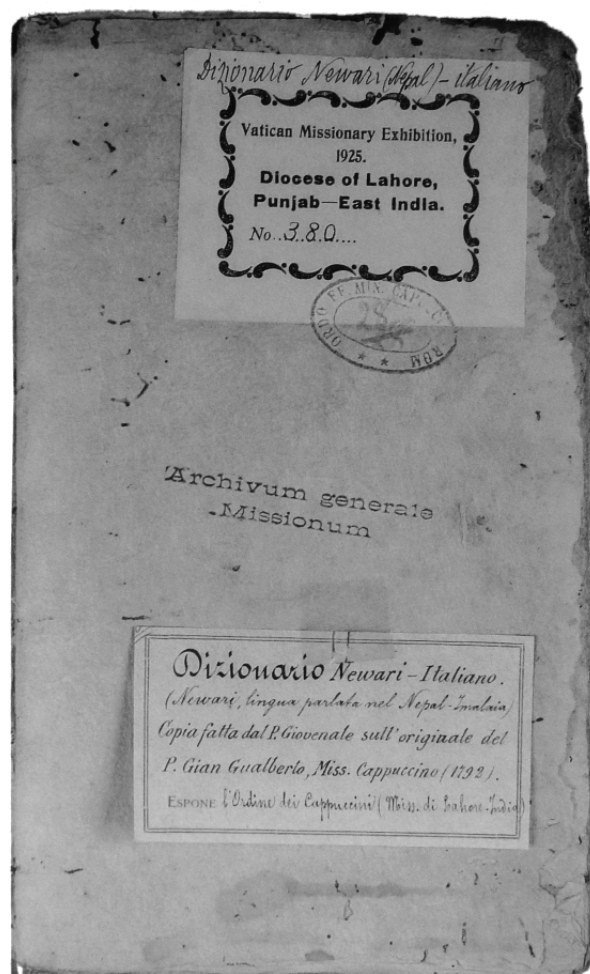 Dizionario Newari (Nepal) - italiano
Vatican Missionary Exhibition,
1925.
Diocese of Lahore,
Punjab—East India.
No..3..8.0....
ORDO FF. MIN. CAP. ROM
Archivum generale
Missionum
Dizionario Newari - Italiano.
(Newari, lingua parlata nel Nepal-Imalaia)
Copia fatta dal P. Giovenale sull'originale del
P. Gian Gualberto, Miss. Cappuccino (1792).
ESPONE l'Ordine dei Cappuccini (Miss. di Lahore-India)